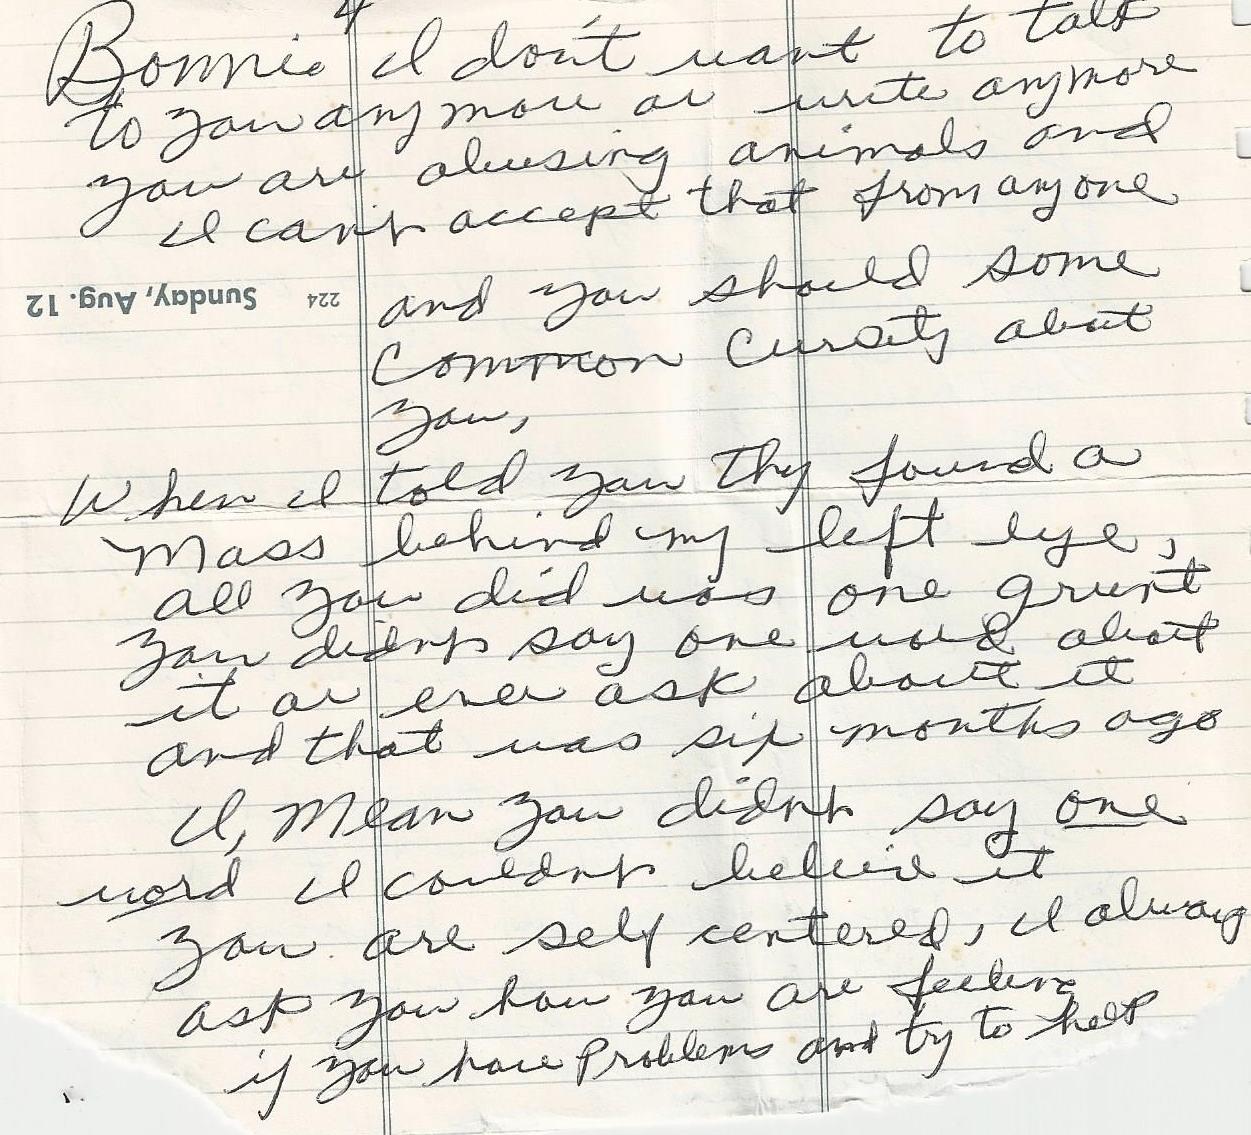 Bonnie I don't want to talk
to you anymore or write anymore
you are abusing animals and
I can't accept that from anyone
Sunday, Aug. 12 224
and you should some
common cursity about
you,
When I told you thy found a
mass behind my left eye,
all you did was one grunt
you didn't say one word about
it or ever ask about it
and that was six months ago
I, mean you didn't say one
word I couldn't belive it
you are self centered, I alway
ask you how you are feeling
if you have problems and try to help